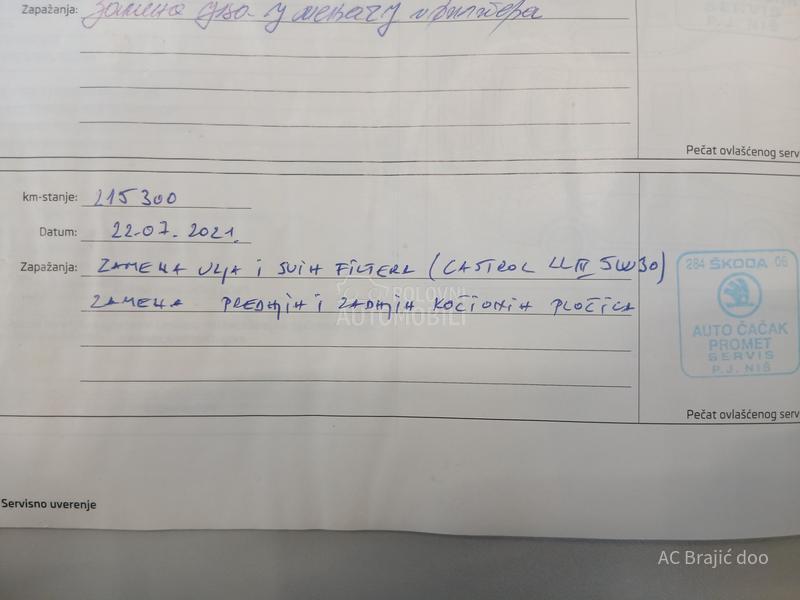 Zapažanja: замена уља у мењачу и филтера
Pečat ovlašćenog serv
km-stanje: 215 300
Datum: 22.07.2021.
Zapažanja: ZAMENA ULJA I SVIH FILTERA (CASTROL LL III 5W30)
ZAMENA PREDNJIH I ZADNJIH KOČIONIH PLOČICA
POLOVNI
AUTOMOBILI
284 ŠKODA 06
AUTO ČAČAK
PROMET
SERVIS
P.J. NIŠ
Pečat ovlašćenog serv
Servisno uverenje
AC Brajić doo